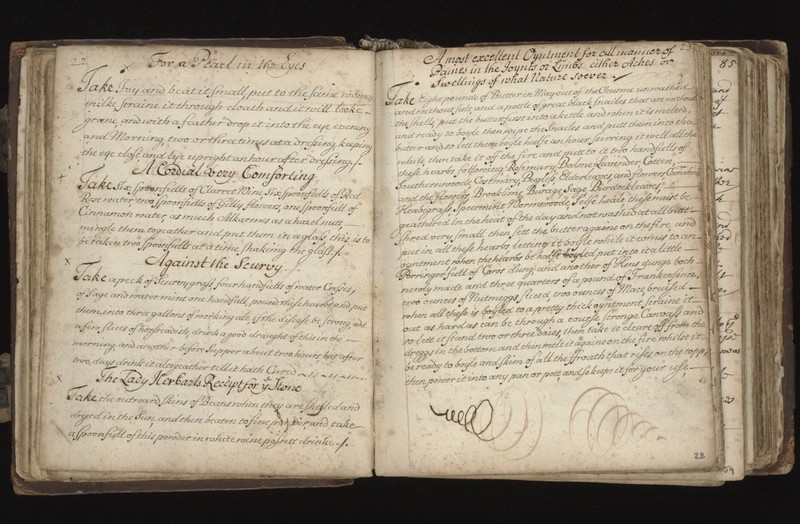 22
For a Pearl in the Eyes
Take Ivy and beat it small, put to the same womans
milke straine it through cloath and it will looke
grene, and with a feather drop it into the eye evening
and Morning, two or three times at a dressing, keeping
the eye close, and lye upright an houre after dressing
A Cordial very Comforting
Take Six spoonfulls of Clarret Wine, Six spoonfulls of Red
Rose water two spoonfulls of Gilly flowers, one spoonfull of
Cinnamon water, as much Alkermes as a hazel nutt,
mingle them togeather and put them in a glass, this is to
be taken two spoonfulls at a time shaking the glass
Against the Scurvy
Take a peck of Scurvygrass four handfulls of water Cresses,
of Sage and water mint one handfull, pound these hearbs and put
them into three gallons of working ale, if the disease be strong add
slices of horsradish, drink a good draught of this in the
morning and another before Supper about two hours, but after
two days drink it altogeather till it hath Cured
The Lady Herbarts Receipt for ye Stone
Take the outward skins of Beans when they are shelled and
dryed in the Sun, and then beaten to fine powder, and take
a spoonfull of this powder in white wine possett drinke
A most excellent Oyntment for all manner of
Paints in the Joynts or Limbs, either Aches or
Swellings of what Nature soever
Take Eight pounds of Butter in May out of the Churme unwashed
and without salt, and a pottle of great black snailes that are without
the shells, put the butter first into a kettle and when it is melted
and ready to boyle then wipe the Snailes and putt them into the
butter and so lett them boyle halfe an hour stirring it well all the
while, then take it off the fire and putt to it two handfulls of
these hearbs following Rosemary, Balme Lavender Cotten,
Southernwoode, Costmary, Bugle, Elder leaves, and flowers Camomile
and the flowers, Brooklime, Burage Sage Burdock leaves
Spearmint Wormwood, Selfe heale these must be
geathered in the heat of the day and not washed at all butt
shred very small then sett the butter againe on the fire and
put in all these hearbs letting it boyle while it comes to an
oyntment when the hearbs be halfe boyled put into it a little
Porringer full of Cows dung and another of Hens dunge both
newly made and three quarters of a pound of Frankensence,
two ounces of Nutmeggs sliced two ounces of Mace bruised
when all these is boyled to a pretty thick oyntment straine it
out as hard as can be through a course stronge Canvass and
so lett it stand two or three daies, then take it cleare off from the
dreggs in the bottom and then melt it againe on the fire whilst it
be ready to boyle and skim of all the froath that rises on the topp,
then power it into any pan or pott, and so keepe it for your use
well
23
85